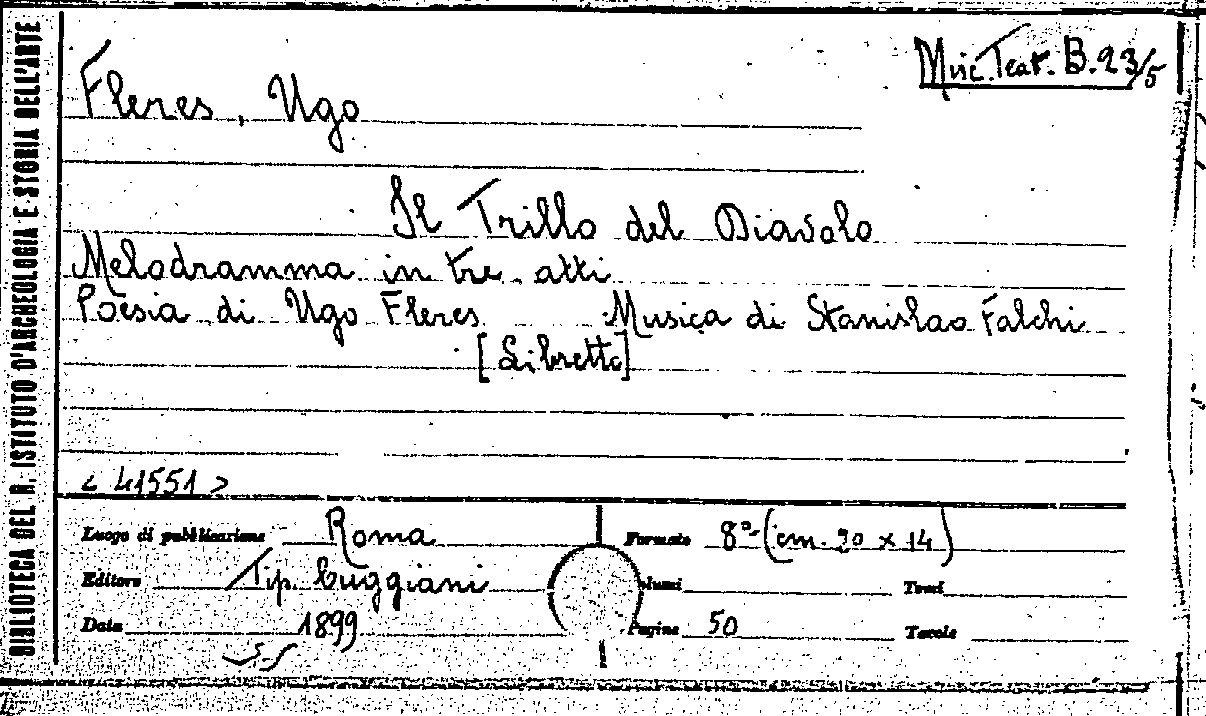 BIBLIOTECA DEL R. ISTITUTO D'ARCHEOLOGIA E STORIA DELL'ARTE
Misc. Teat. B. 23/5
Fleres, Ugo
Il Trillo del Diavolo
Melodramma in tre atti
Poesia di Ugo Fleres Musica di Stanislao Falchi
[Libretto]
< 41551 >
Luogo di pubblicazione Roma Formato 8º (cm. 20 x 14)
Editore Tip. Cuggiani Volumi Tomi
Data 1899 Pagine 50 Tavole